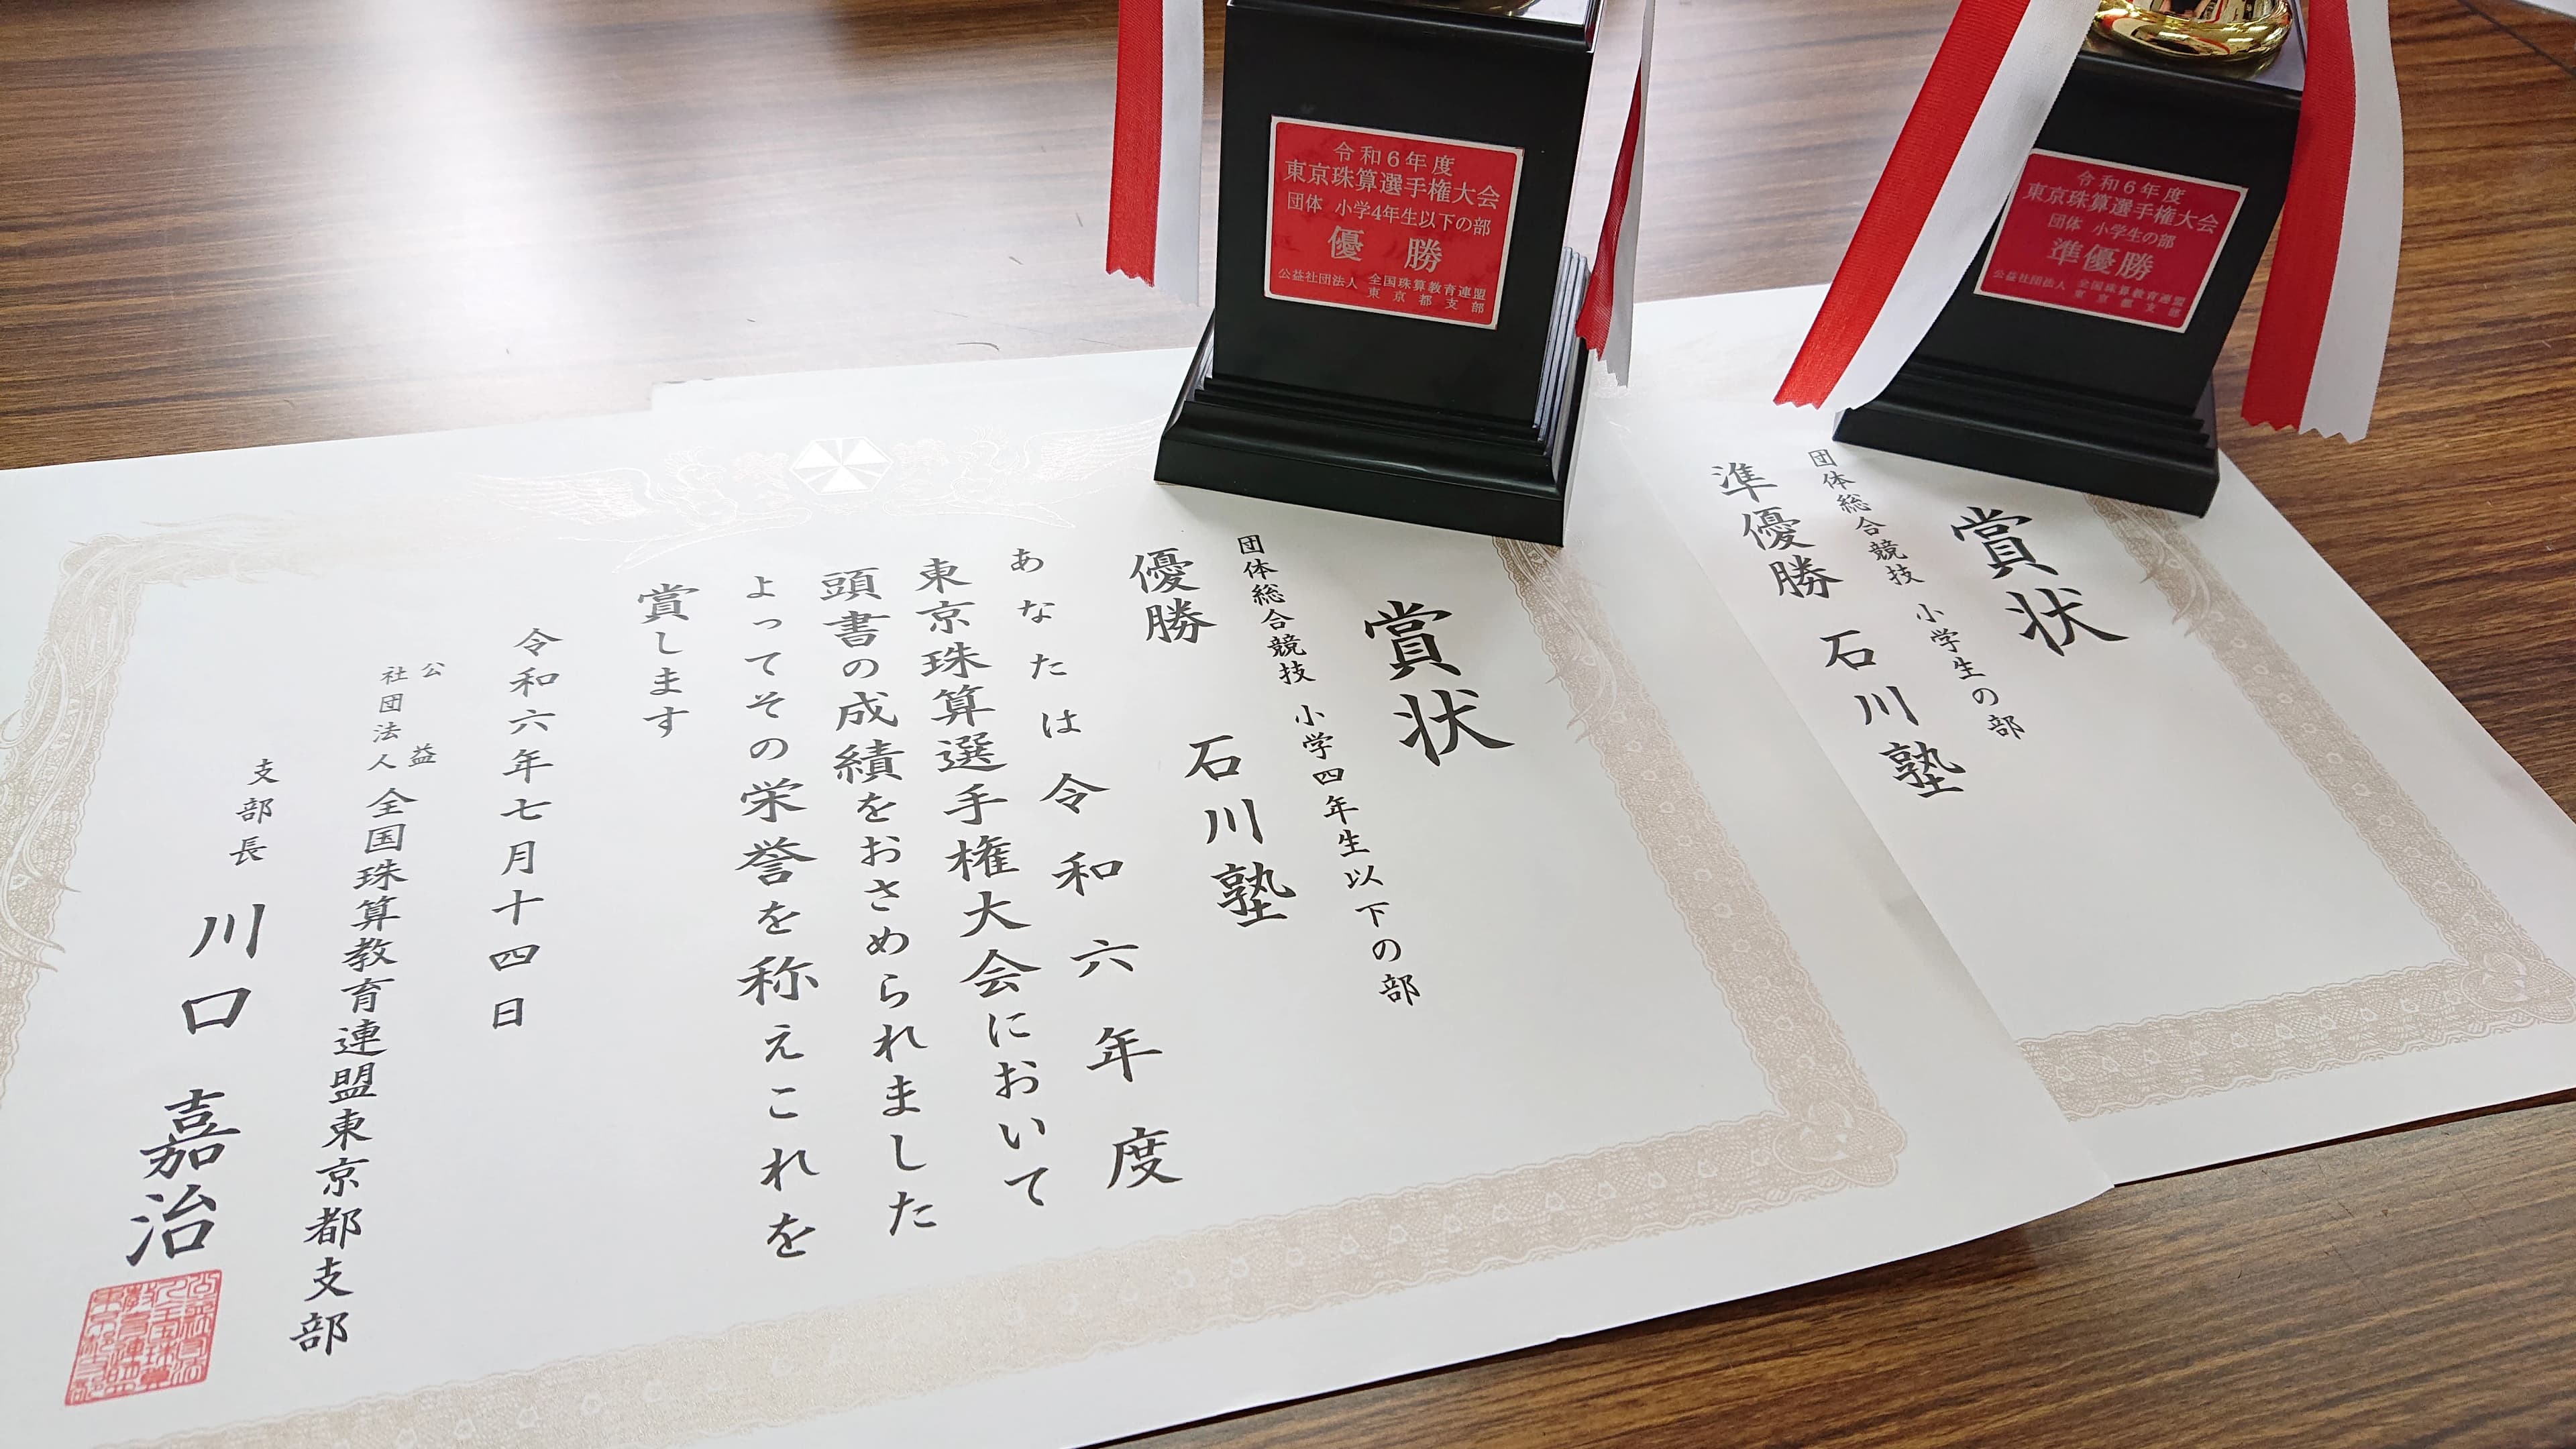 令和6年度
東京珠算選手権大会
団体 小学4年生以下の部
優 勝
公益社団法人 全国珠算教育連盟
東京都支部
令和6年度
東京珠算選手権大会
団体 小学生の部
準優勝
公益社団法人 全国珠算教育連盟
東京都支部
賞状
団体総合競技 小学生の部
準優勝 石川塾
賞状
団体総合競技 小学四年生以下の部
優勝 石川塾
あなたは令和六年度
東京珠算選手権大会において
頭書の成績をおさめられました
よってその栄誉を称えこれを
賞します
令和六年七月十四日
公益
社団法人 全国珠算教育連盟東京都支部
支部長 川口嘉治